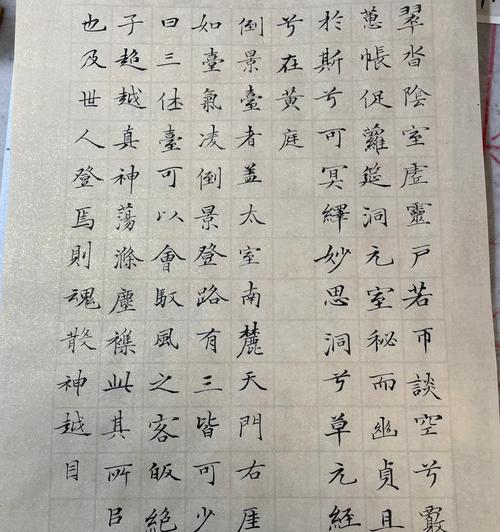 翠沓陰室虛靈戶若帀談空兮覈
蕙帳促蘿筵洞元室秘而幽貞且
於斯兮可冥繹妙思洞兮草元經
兮在黃庭
倒景臺者蓋太室南麓天門右厓
如臺氣凌倒景登路有三皆可少
曰三休臺可以會馭風之客皈絕
子超越真神蕩滌塵襟此其所㠯
也及世人登焉則魂散神越目